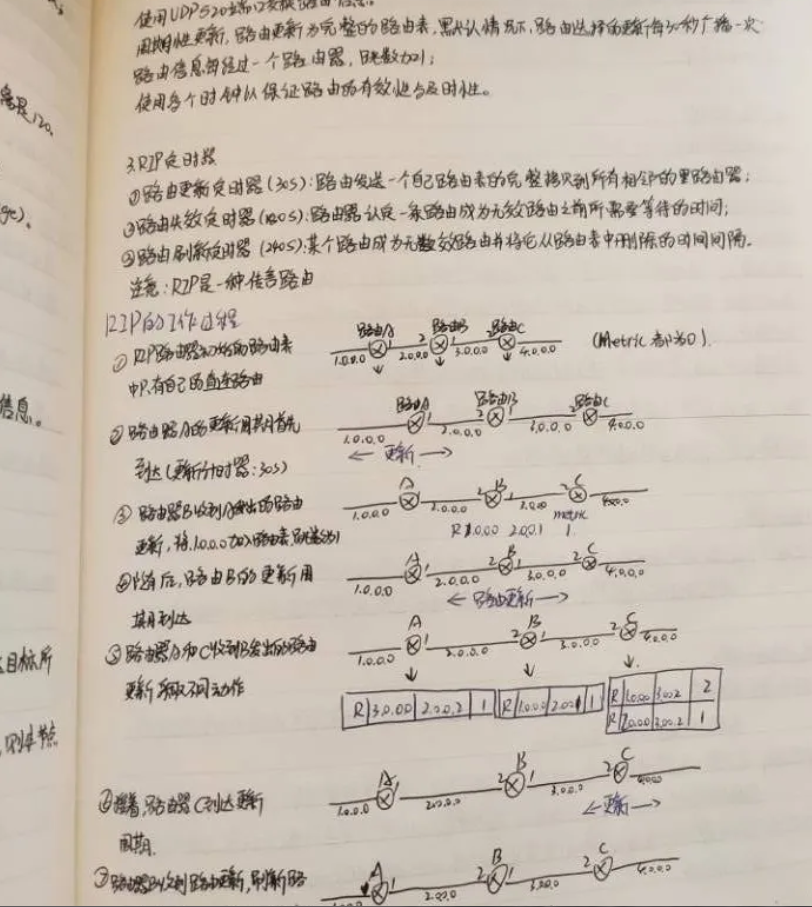 使用UDP520端口交换路由信息。
周期性更新,路由更新为完整的路由表,默认情况下,路由选择的更新每30秒广播一次
路由信息每经过一个路由器,跳数加1;
使用多个时钟以保证路由的有效性与及时性。
是120。
3.RIP定时器
①路由更新定时器(30S):路由发送一个自己路由表的完整拷贝到所有相邻的里路由器;
②路由失效定时器(180S):路由器认定一条路由成为无效路由之前所需要等待的时间;
③路由刷新定时器(240S):某个路由成为无效路由并将它从路由表中删除的时间间隔。
注意:RIP是一种传言路由
RIP的工作过程
①RIP路由器初始的路由表
中只有自己的直连路由
路由A 路由B 路由C
1 2 1 2
1.0.0.0 2.0.0.0 3.0.0.0 4.0.0.0 (Metric都为0)
②路由器A的更新周期首先
到达(更新计时器:30S)
路由A 路由B 路由C
1 2 1 2
1.0.0.0 2.0.0.0 3.0.0.0 4.0.0.0
更新
信息。
③路由器B收到A发出的路由
更新,将1.0.0.0加入路由表,跳数为1
A B C
1 2 1 2
1.0.0.0 2.0.0.0 3.0.0.0 4.0.0.0
metric
R 1.0.0.0 2.0.0.1 1
④随后,路由B的更新周
期到达
A B C
1 2 1 2
1.0.0.0 2.0.0.0 3.0.0.0 4.0.0.0
路由更新
⑤路由器A和C收到B发出的路由
更新采取不同动作
A B C
1 2 1 2
1.0.0.0 2.0.0.0 3.0.0.0 4.0.0.0
R 3.0.0.0 2.0.0.2 1
R 1.0.0.0 2.0.0.1 1
R 1.0.0.0 3.0.0.2 2
R 2.0.0.0 3.0.0.2 1
目标所
⑥接着,路由器C到达更新
周期.
A B C
1 2 1 2
1.0.0.0 2.0.0.0 3.0.0.0 4.0.0.0
更新
⑦路由器B收到路由更新,刷新路
A B C
1 2 1 2
2.0.0.0 3.0.0.0 4.0.0.0